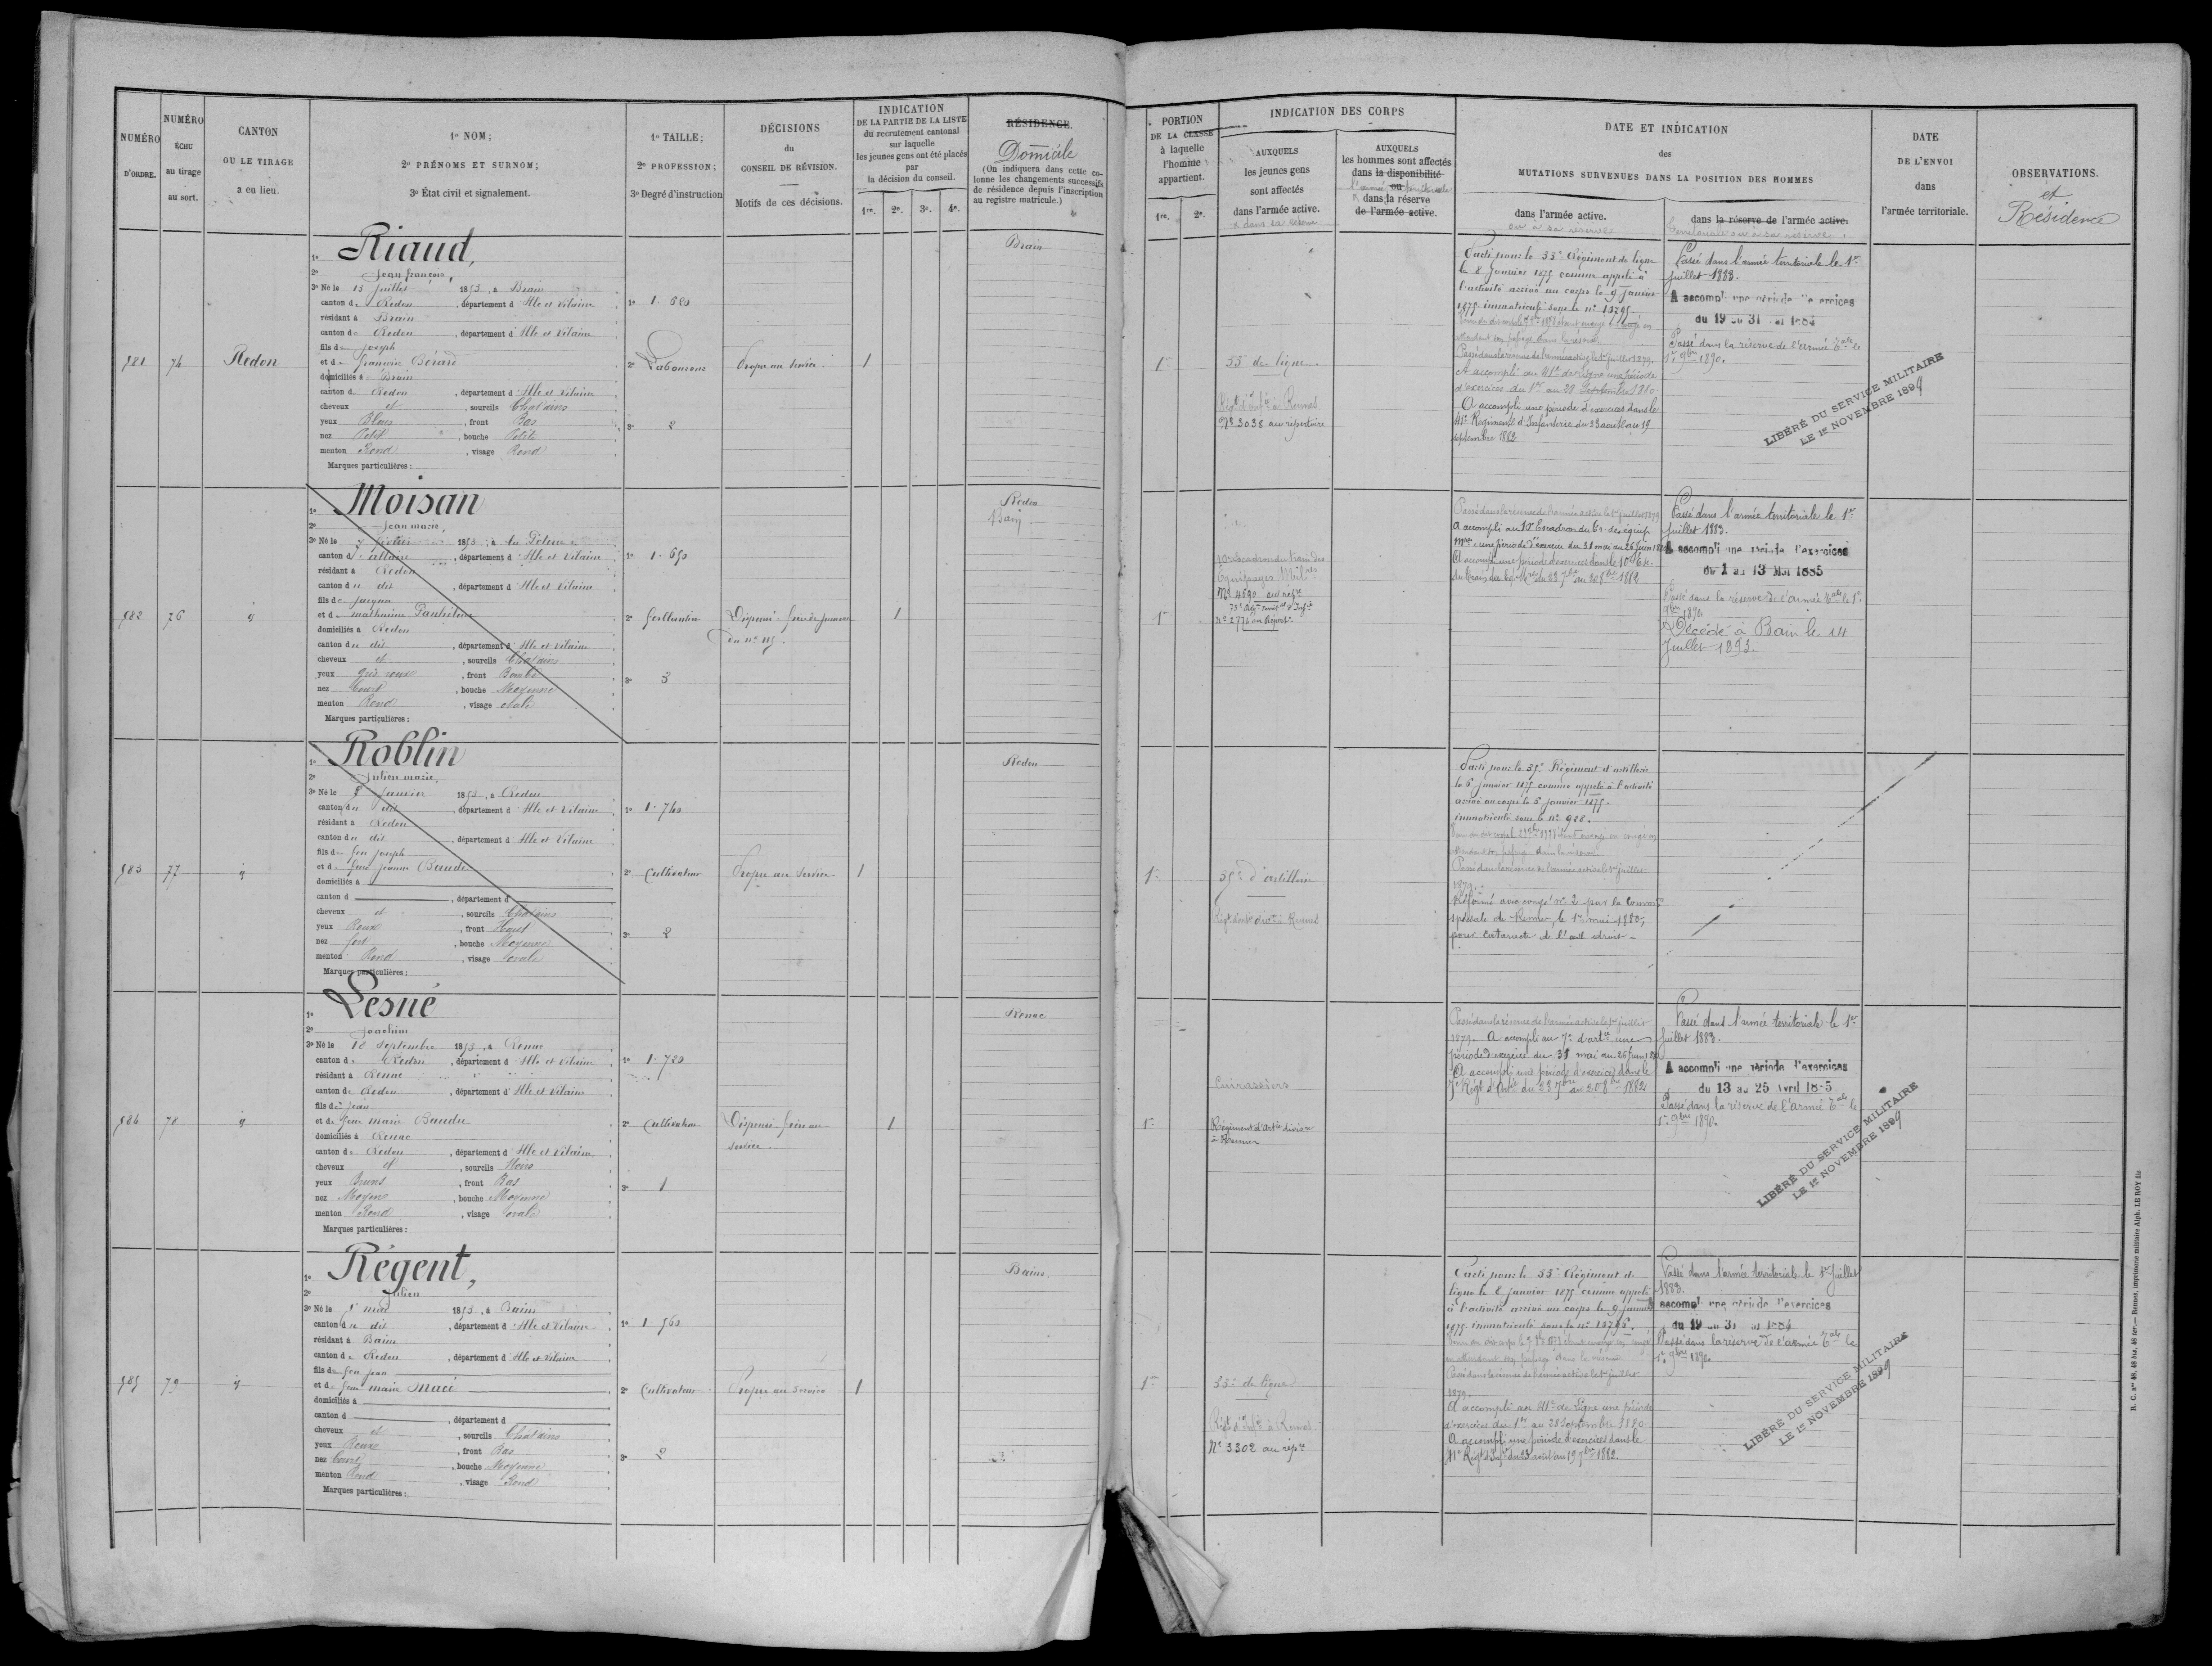 NUMÉRO
D'ORDRE.
NUMÉRO
ÉCHU
au tirage
au sort.
CANTON
OU LE TIRAGE
a eu lieu.
1º NOM;
2º PRÉNOMS ET SURNOM;
3º État civil et signalement.
1º TAILLE;
2º PROFESSION;
3º Degré d'instruction
DÉCISIONS
du
CONSEIL DE RÉVISION.
Motifs de ces décisions.
INDICATION
DE LA PARTIE DE LA LISTE
du recrutement cantonal
sur laquelle
les jeunes gens ont été placés
par
la décision du conseil.
1re. 2e. 3e. 4e.
RÉSIDENCE.
Domicile
(On indiquera dans cette co-
lonne les changements successifs
de résidence depuis l'inscription
au registre matricule.)
PORTION
DE LA CLASSE
à laquelle
l'homme
appartient.
1re. 2e.
INDICATION DES CORPS
AUXQUELS
les jeunes gens
sont affectés
dans l'armée active.
AUXQUELS
les hommes sont affectés
dans la disponibilité
ou
dans la réserve
de l'armée active.
DATE ET INDICATION
des
MUTATIONS SURVENUES DANS LA POSITION DES HOMMES
dans l'armée active.
ou à sa réserve
dans la réserve de l'armée active.
territoriale ou à sa réserve.
DATE
DE L'ENVOI
dans
l'armée territoriale.
OBSERVATIONS.
et
Résidence
981
74
Redon
1º Riaud,
2º Jean françois,
3º Né le 13 juillet 1853, à Brain
canton de Redon, département d'Ille et Vilaine
résidant à Brain
canton de Redon, département d'Ille et Vilaine
fils de joseph
et de françoise Bérard
domiciliés à Brain
canton de Redon, département d'Ille et Vilaine
cheveux et, sourcils Chatains
yeux Bleus, front Bas
nez Petit, bouche Petite
menton Rond, visage Rond
Marques particulières:
1º 1.680
2º Laboureur
3º 2
Propre au service.
1
Brain
1re
33e de ligne.
Régt d'Infie à Rennes
Nº 3038 au répertoire
Parti pour le 33e Régiment de ligne
le 8 janvier 1875 comme appelé à
l'activité arrivé au corps le 9 janvier
1875 immatriculé sous le nº 13795.
Passé dans la réserve de l'armée active le 1er juillet 1879.
A accompli au 41e de ligne une période
d'exercices du 1er au 28 Septembre 1880
A accompli une période d'exercices dans le
41e Régiment d'Infanterie du 23 août au 19
septembre 1882
Passé dans l'armée territoriale le 1er
juillet 1883.
A accompli une période d'exercices
du 19 au 31 mai 1884
Passé dans la réserve de l'armée Tale le
1er 9bre 1890.
LIBÉRÉ DU SERVICE MILITAIRE
LE 1er NOVEMBRE 1899
982
76
id
1º Moisan
2º Jean marie,
3º Né le 7 février 1853, à
canton d, département d'Ille et Vilaine
résidant à Redon
canton du dit, département d'Ille et Vilaine
fils de jacques
et de mathurine
domiciliés à Redon
canton du dit, département d'Ille et Vilaine
cheveux et, sourcils Chatains
yeux gris roux, front Bombé
nez Court, bouche Moyenne
menton Rond, visage ovale
Marques particulières:
1º 1.650
2º
3º 3
Dispensé.
1
Redon
Bain.
1re
10e Escadron du train des
équipages Milres
Nº 4690 au répre
75e Régt territ. al d'Infie
nº 2774 au Répert.
Passé dans la réserve de l'armée active le 1er juillet 1879
A accompli au 10e Escadron du tr. des équip.
Mres une période d'exercice du 31 mai au 26 juin 1880
A accompli une période d'exercices dans le 10e Esc.
du train des Eq. Mres du 23 7bre au 20 8bre 1882
Passé dans l'armée territoriale le 1er
juillet 1883.
A accompli une période d'exercices
du 1 au 13 Mai 1885
Passé dans la réserve de l'armée Tale le 1er
9bre 1890.
Décédé à Bain le 14
Juillet 1893.
983
77
id
1º Roblin
2º Julien marie,
3º Né le 8 janvier 1853, à Redon
canton du dit, département d'Ille et Vilaine
résidant à Redon
canton du dit, département d'Ille et Vilaine
fils de feu joseph
et de feue jeanne Baude
domiciliés à
canton d, département d
cheveux et, sourcils Chatains
yeux Roux, front Haut
nez fort, bouche Moyenne
menton Rond, visage ovale
Marques particulières:
1º 1.740
2º Cultivateur
3º 2
Propre au service
1
Redon
1re
35e d'artillerie
Régt d'art. divre à Rennes
Parti pour le 35e Régiment d'artillerie
le 6 janvier 1875 comme appelé à l'activité
arrivé au corps le 6 janvier 1875.
immatriculé sous le nº 928.
Passé dans la réserve de l'armée active le 1er juillet
1879.
Réformé avec congé nº 2 par la Common
spéciale de Rennes, le 1er mai 1880,
pour cataracte de l'œil droit.
984
78
id
1º Lesné
2º Joachim
3º Né le 10 septembre 1853, à Renac
canton de Redon, département d'Ille et Vilaine
résidant à Renac
canton de Redon, département d'Ille et Vilaine
fils de jean
et de feue marie Baudu
domiciliés à Renac
canton de Redon, département d'Ille et Vilaine
cheveux et, sourcils Noirs
yeux Bruns, front Bas
nez Moyen, bouche Moyenne
menton Rond, visage ovale
Marques particulières:
1º 1.720
2º Cultivateur
3º 1
Dispensé. frère au
service.
1
Renac
1re
Cuirassiers
Régiment d'artie divisre
à Rennes
Passé dans la réserve de l'armée active le 1er juillet
1879. A accompli au 7e d'artie une
période d'exercice du 31 mai au 26 juin 1880
A accompli une période d'exercices dans le
7e Régt d'Artie du 23 7bre au 20 8bre 1882
Passé dans l'armée territoriale le 1er
juillet 1883.
A accompli une période d'exercices
du 13 au 25 Avril 1885
Passé dans la réserve de l'armée Tale le
1er 9bre 1890.
LIBÉRÉ DU SERVICE MILITAIRE
LE 1er NOVEMBRE 1899
985
79
id
1º Régent,
2º Julien
3º Né le 8 mai 1853, à Bains
canton du dit, département d'Ille et Vilaine
résidant à Bains
canton de Redon, département d'Ille et Vilaine
fils de feu jean
et de feue marie Macé
domiciliés à
canton d, département d
cheveux et, sourcils Chatains
yeux Roux, front Bas
nez Court, bouche Moyenne
menton Rond, visage Rond
Marques particulières:
1º 1.560
2º Cultivateur
3º 2
Propre au service
1
Bains.
1re
33e de ligne
Régt d'Infie à Rennes
Nº 3302 au répre
Parti pour le 33e Régiment de
ligne le 8 janvier 1875 comme appelé
à l'activité arrivé au corps le 9 janvier
1875 immatriculé sous le nº 13796.
Passé dans la réserve de l'armée active le 1er juillet
1879.
A accompli au 41e de Ligne une période
d'exercices du 1er au 28 Septembre 1880
A accompli une période d'exercices dans le
41e Régt d'Infie du 23 août au 19 7bre 1882.
Passé dans l'armée territoriale le 1er Juillet
1883.
A accompli une période d'exercices
du 19 au 31 mai 1884
Passé dans la réserve de l'armée Tale le
1er 9bre 1890.
LIBÉRÉ DU SERVICE MILITAIRE
LE 1er NOVEMBRE 1899
R. C. nos 48, 48 bis, 48 ter.— Rennes, imprimerie militaire Alph. LE ROY fils